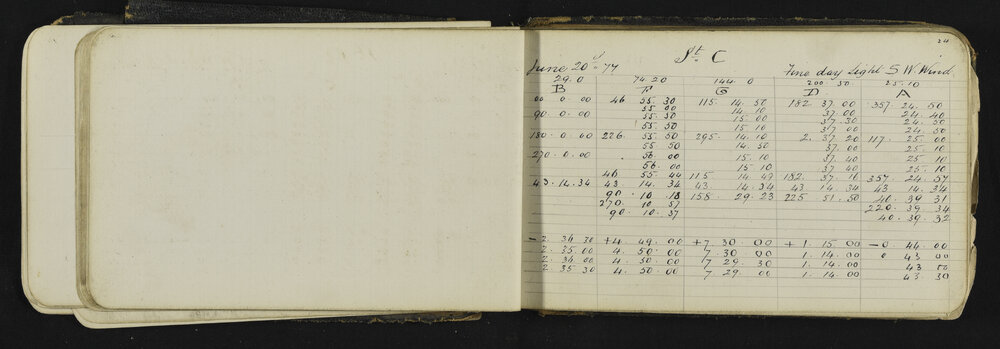 24
St. C
June 20th 77 Fine day Light S.W. Wind
29.0 74.20 144.0 200.50 25.10
B F G D A
00 0 00 46 55.30 115.14.50 182.37.00 357.24.50
55.00 14.10 37.00 24.40
90.0.00 55.50 15.00 37.30 24.50
55.50 15.10 37.00 24.50
180.0.00 226.55.50 295.14.10 2.37.20 117.25.00
55.50 14.50 37.00 25.10
270.0.00 56.00 15.10 37.40 25.10
56.00 15.10 37.40 25.10
46 55.44 115 14.49 182.37.16 357.24.57
43.14.34 43 14.34 43. 14.34 43 14.34 43 14.34
90.10.18 158.29.23 225 51.50 40.39.31
270.10.57 220.39.34
90.10.37 40.39.32
-2.34 30 +4.49.00 +7 30.00 +1.15.00 -0 44.00
2.35.00 4.50.00 7 30 00 1.14.00 0 43 00
2.34 00 4.50.00 7 29 30 1.14.00 43 00
2 35 30 4.50.00 7 29 00 1.14.00 43.30